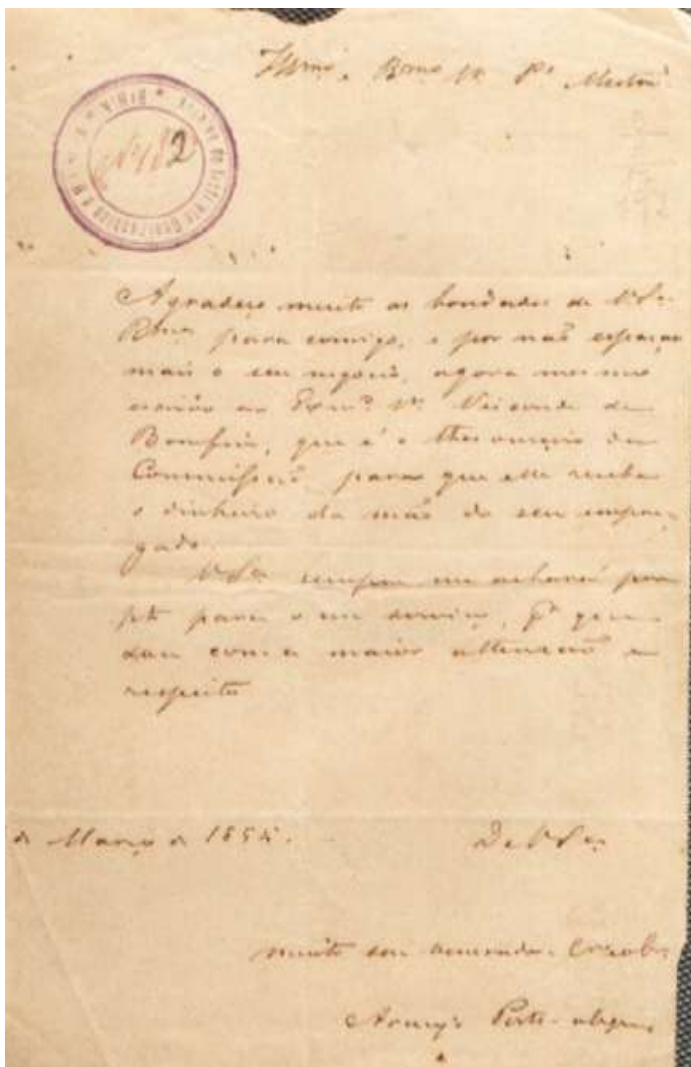 Illmo e Rmo Sr Pe Mestre
182
Agradeço muito as bondades de V. Sa
Rma para comigo, e por não esperar
mais o seu negocio, agora mesmo
ao Exmo Sr Visconde de
Bomfim, que é o thesoureiro da
Commissão para que elle receba
o dinheiro da mão do seu empre
gado.
V. Sa sempre me achará prom
pto para o seu serviço, pr
sou com a maior attenção e
respeito
de Março de 1854.
De V. Sa
muito seu venerador e Crdo obr
Araujo Porto-alegre